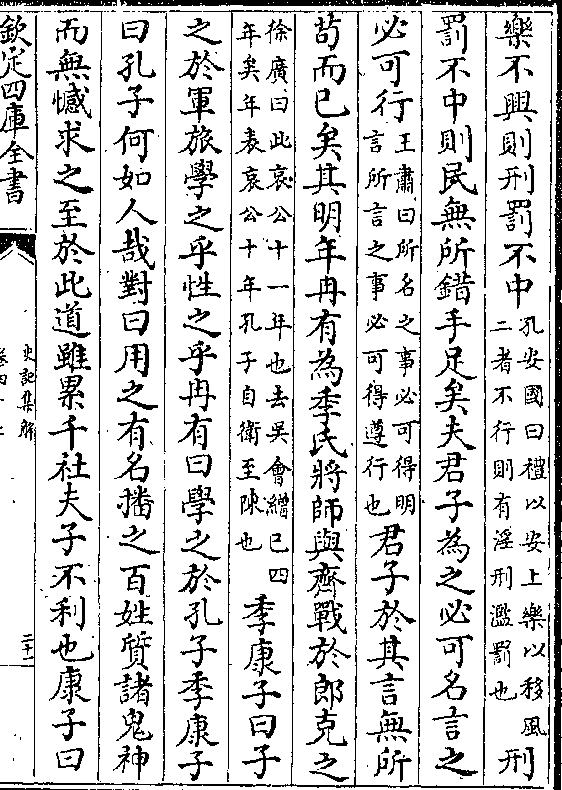 樂不興則刑罰不中孔安國曰禮以安上樂以移風二者不行則有淫刑濫罰也刑
罰不中則民無所錯手足矣夫君子為之必可名言之
必可行王肅曰所名之事必可得明言所言之事必可得遵行也君子於其言無所
苟而已矣其明年冉有為季氏將師與齊戰於郎克之
徐廣曰此哀公十一年也去吳會繒已四年矣年表哀公十年孔子自衛至陳也季康子曰子
之於軍旅學之乎性之乎冉有曰學之於孔子季康子
曰孔子何如人哉對曰用之有名播之百姓質諸鬼神
而無憾求之至於此道雖累千社夫子不利也康子曰
欽定四庫全書
史記集解
二十一